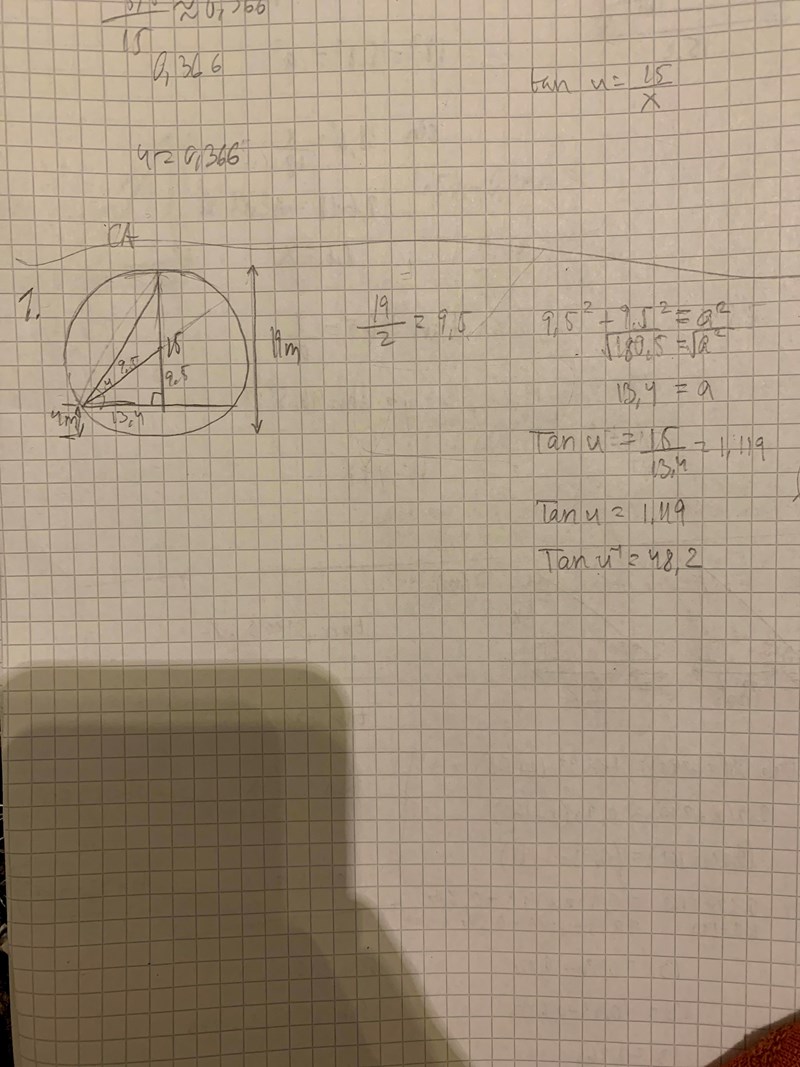 ≈ 0,366
15
0,366
tan u = 15/x
u = 0,366
CA
1.
15
9,5
u
9.5
19m
4m
13,4
19/2 = 9,5
9,5² + 9.5² = a²
√180,5 = √a²
13,4 = a
Tan u = 15/13,4 = 1,119
Tan u = 1,119
Tan u⁻¹ = 48,2